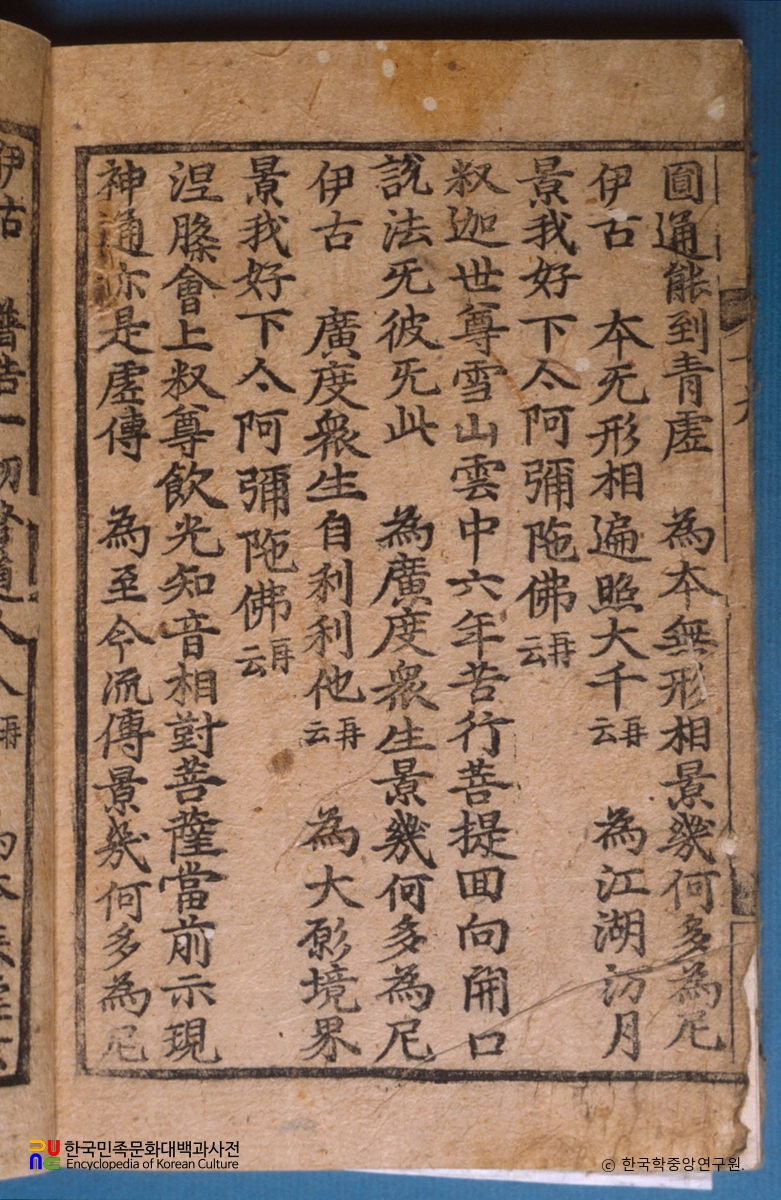 圎通能到青虗　為本無形相景幾何多為尼
伊古　本旡形相遍照大千再云　為江湖汾月
景我好下仒阿彌陁佛再云
釈迦世尊雪山雲中六年苦行菩提回向開口
說法旡彼旡此　為廣度衆生景幾何多為尼
伊古　廣度衆生自利利他再云　為大影境界
景我好下仒阿彌陁佛再云
涅槃會上釈尊飮光知音相對菩薩當前示現
神通亦是虗傳　為至今流傳景幾何多為尼
伊古
한국민족문화대백과사전
Encyclopedia of Korean Culture
© 한국학중앙연구원.